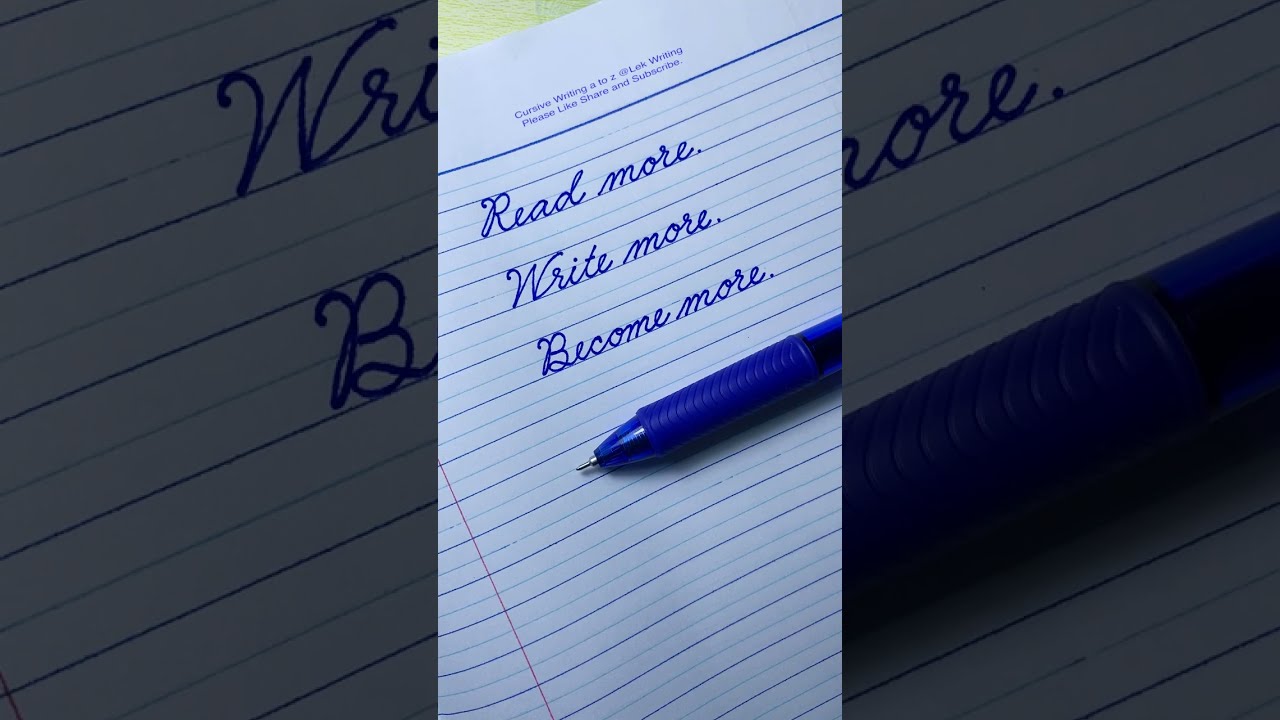 Cursive Writing a to z @Lek Writing
Please Like Share and Subscribe.
Read more.
Write more.
Become more.